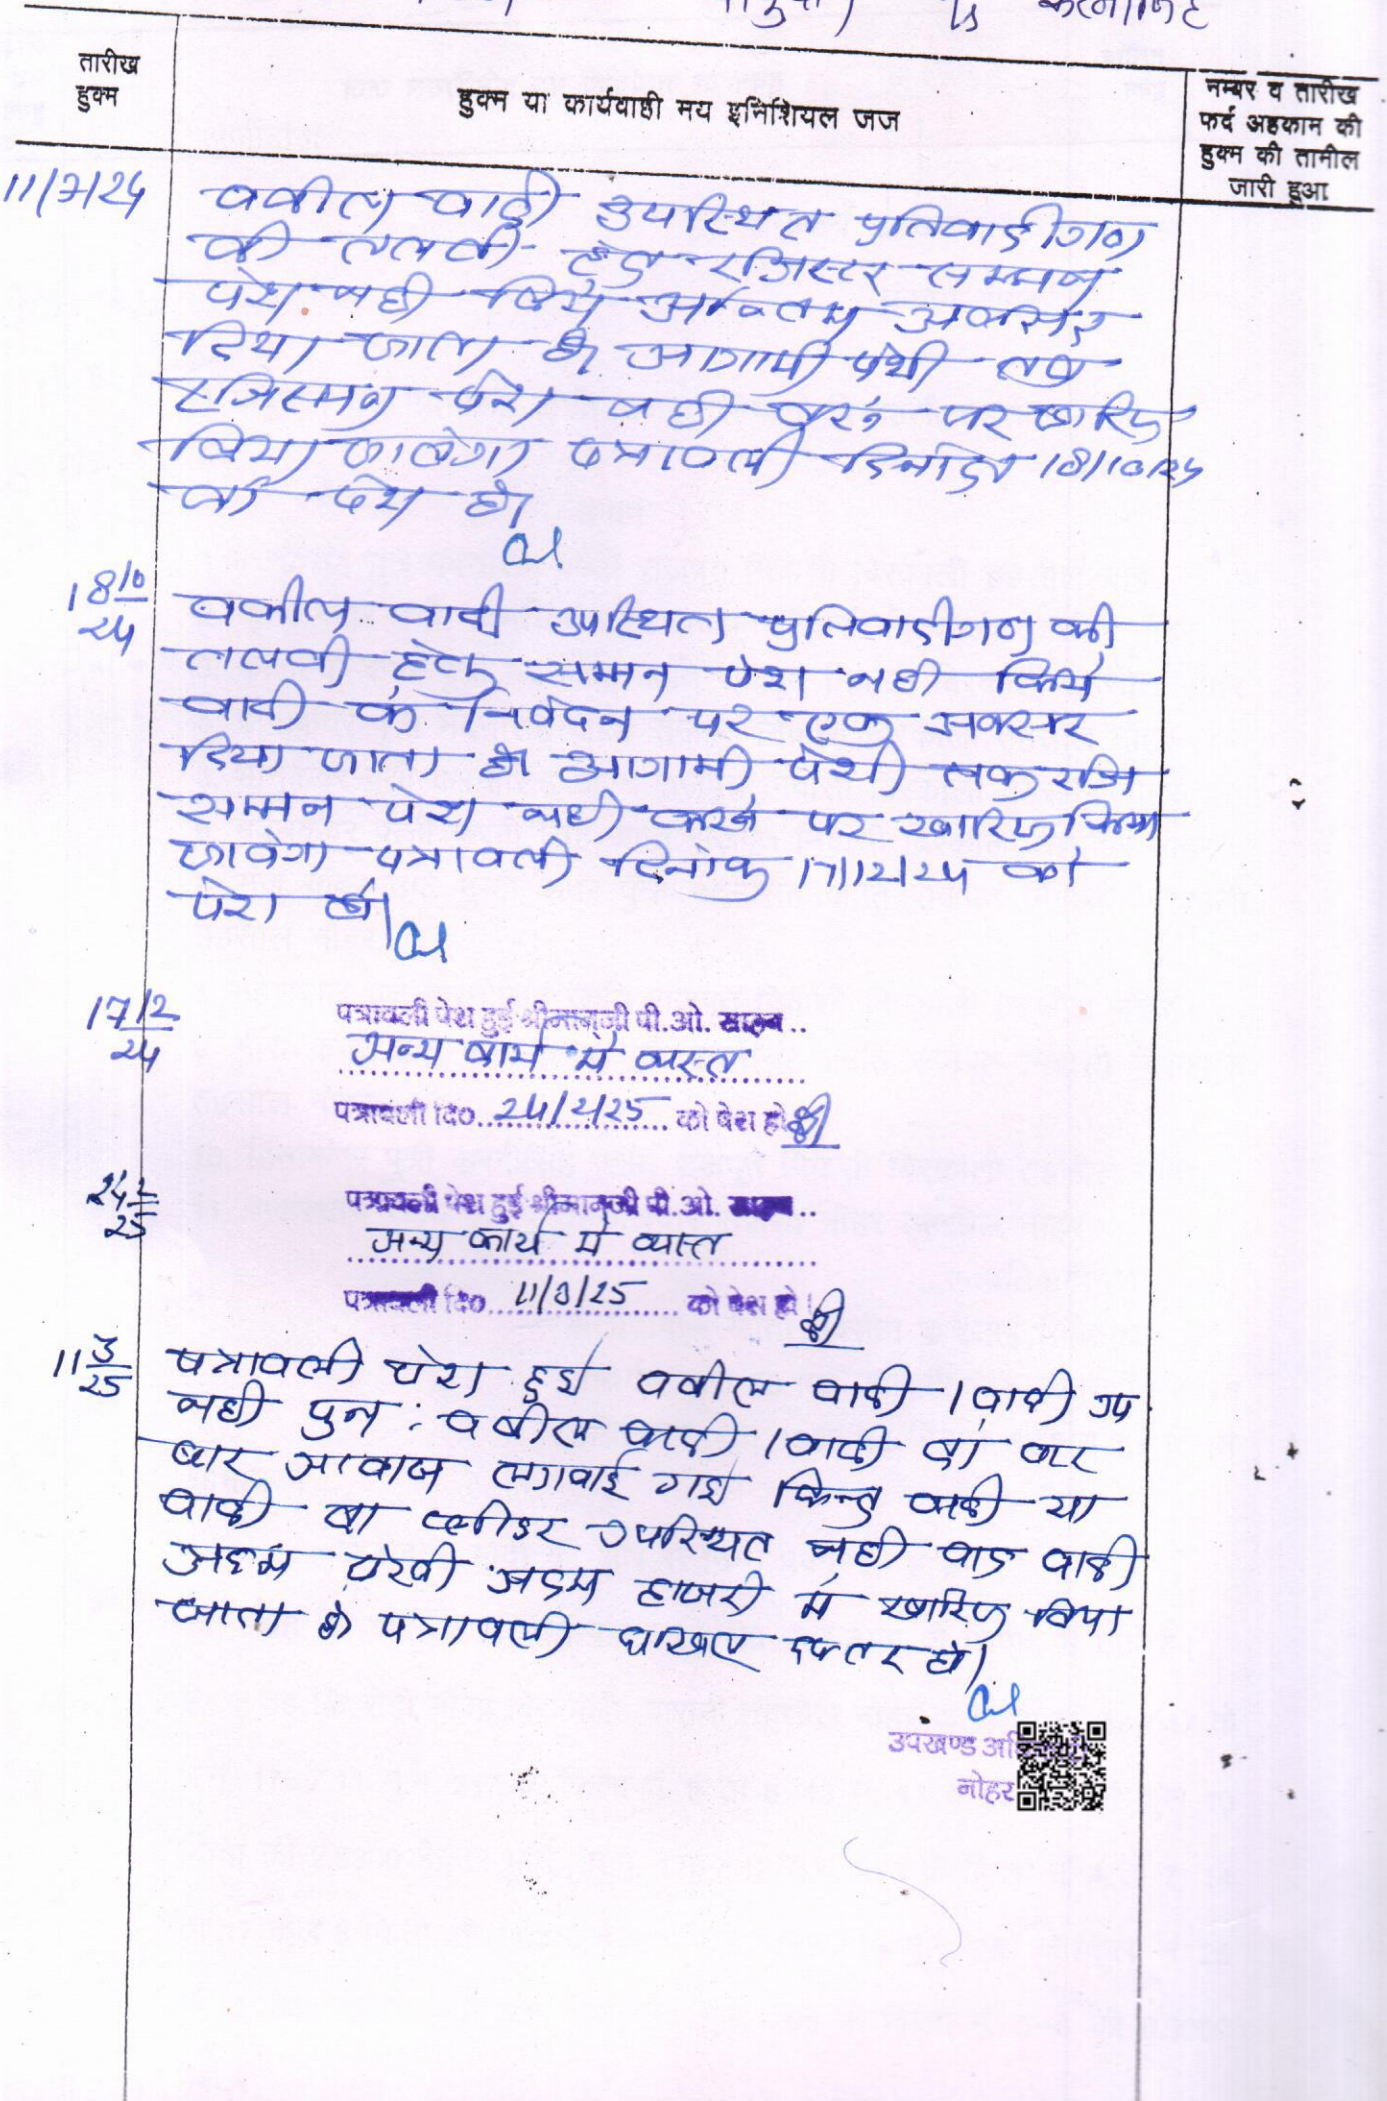 तारीख
हुक्म
हुक्म या कार्यवाही मय इनिशियल जज
नम्बर व तारीख
फर्द अहकाम की
हुक्म की तामील
जारी हुआ
11/7/24
वकील वादी उपस्थित प्रतिवादीगण
की तलबी हेतु रजिस्टर सम्मन
पेश नही किये अन्तिम अवसर
दिया जाता है आगामी पेशी तक
रजिसमन पेश नही करने पर खारिज
किया जावेगा पत्रावली दिनांक 18/10/24
को पेश हो
18/10/24
वकील वादी उपस्थित प्रतिवादीगण की
तलबी हेतु सम्मन पेश नही किये
वादी के निवेदन पर एक अवसर
दिया जाता है आगामी पेशी तक रजि
सम्मन पेश नही करने पर खारिज किया
जावेगा पत्रावली दिनांक 17/12/24 को
पेश हो।
17/12/24
पत्रावली पेश हुई श्रीमान्‌जी पी.ओ. साहब..
अन्य कार्य मे व्यस्त
पत्रावली दि० 24/2/25 को पेश हो
24/2/25
पत्रावली पेश हुई श्रीमान्‌जी पी.ओ. साहब..
अन्य कार्य मे व्यस्त
पत्रावली दि० 11/3/25 को पेश हो।
11/3/25
पत्रावली पेश हुई वकील वादी / वादी उप
नही पुन: वकील वादी / वादी को बार
बार आवाज लगवाई गई किन्तु वादी या
वादी का प्लीडर उपस्थित नही वाद वादी
अदम पेरवी अदम हाजरी में खारिज किया
जाता है पत्रावली दाखिल दफ्तर हो।
उपखण्ड
नोहर